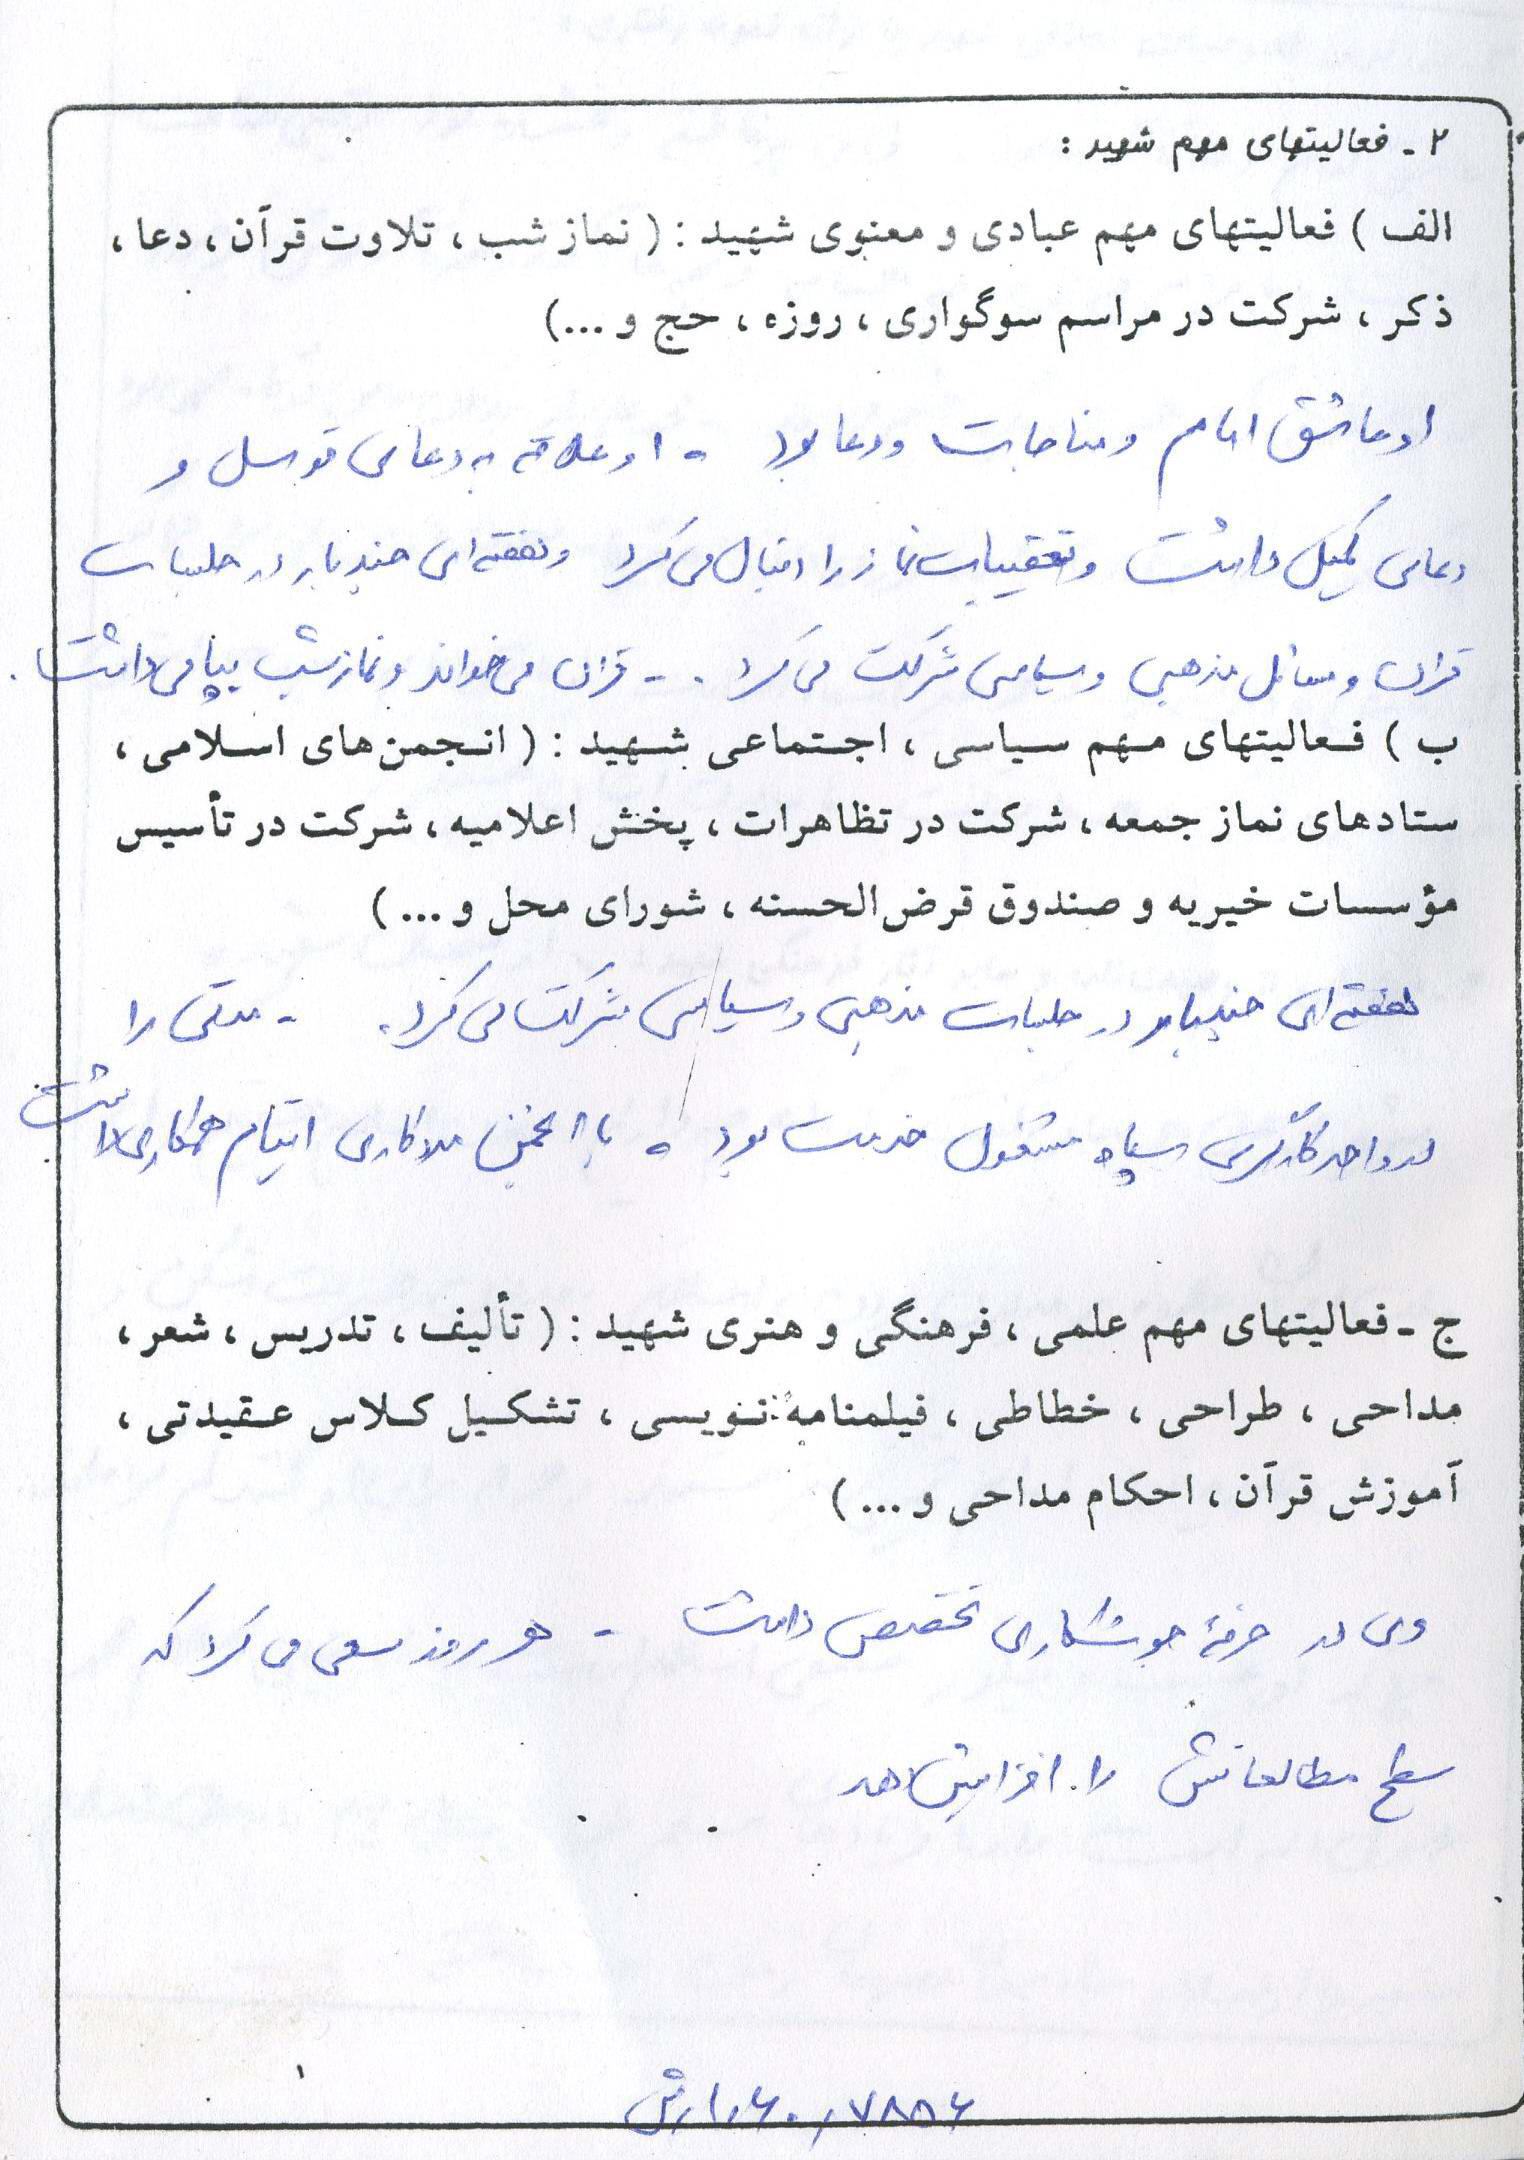 ۲ - فعالیتهای مهم شهید :
الف ) فعالیتهای مهم عبادی و معنوی شهید : ( نماز شب ، تلاوت قرآن ، دعا ،
ذکر ، شرکت در مراسم سوگواری ، روزه ، حج و ...)
او عاشق امام و مناجات و دعا بود - او علاقه به دعای توسل و
دعای کمیل داشت و تعقیبات نماز را دنبال می کرد و هفته ای چند بار در جلسات
قرآن و مسائل مذهبی و سیاسی شرکت می کرد . - قرآن می خواند و نماز شب بپا می داشت .
ب ) فعالیتهای مهم سیاسی ، اجتماعی شهید : ( انجمن های اسلامی ،
ستادهای نماز جمعه ، شرکت در تظاهرات ، پخش اعلامیه ، شرکت در تأسیس
مؤسسات خیریه و صندوق قرض الحسنه ، شورای محل و ... )
هفته ای چند بار در جلسات مذهبی و سیاسی شرکت می کرد . - مدتی را
در واحد کارگری سپاه مشغول خدمت بود و با انجمن مددکاری ایتام همکاری داشت .
ج - فعالیتهای مهم علمی ، فرهنگی و هنری شهید : ( تألیف ، تدریس ، شعر ،
مداحی ، طراحی ، خطاطی ، فیلمنامه نویسی ، تشکیل کلاس عقیدتی ،
آموزش قرآن ، احکام مداحی و ... )
وی در حرفهٔ جوشکاری تخصص داشت - هر روز سعی می کرد که
سطح مطالعاتش را افزایش دهد